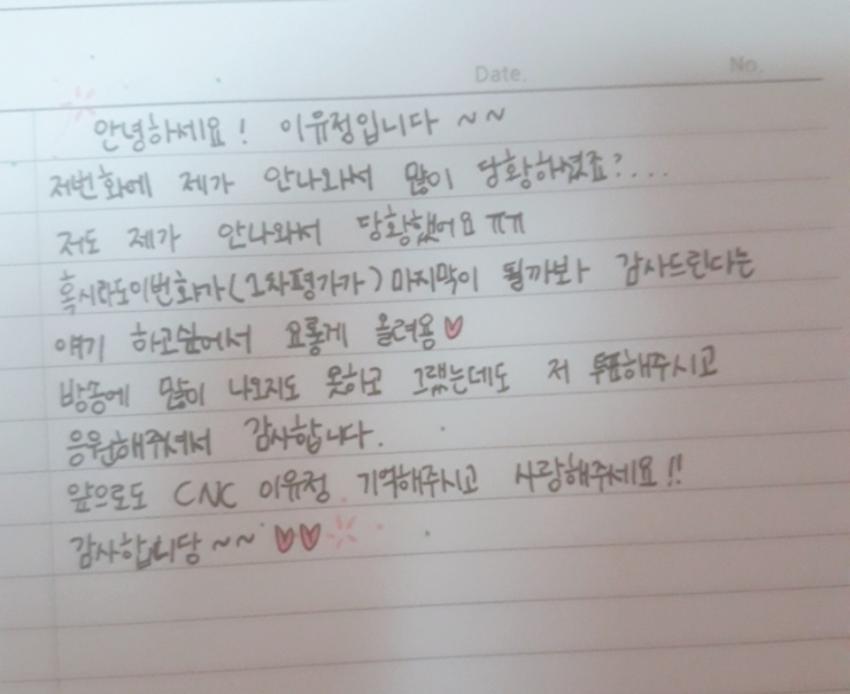 Date.
No.
안녕하세요! 이유정입니다 ~~
저번화에 제가 안나와서 많이 당황하셨죠?....
저도 제가 안나와서 당황했어요 ㅠㅠ
혹시라도이번화가(1차평가가)마지막이 될까봐 감사드린다는
얘기 하고싶어서 요롷게 올려용♥
방송에 많이 나오지도 못하고 그랬는데도 저 투표해주시고
응원해주셔서 감사합니다.
앞으로도 CNC 이유정 기억해주시고 사랑해주세요!!
감사합니당~~ ♥♥